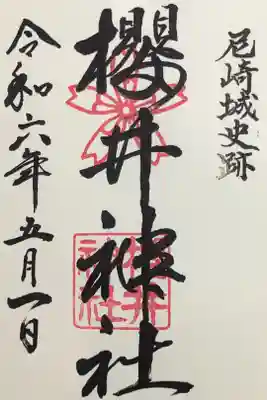 尼崎城史跡
櫻井神社
櫻井神社
令和六年五月一日